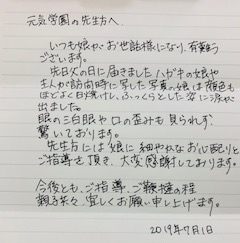 元気学園の先生方へ、
いつも娘がお世話様になり、有難う
ございます。
先日火の日に届きましたハガキの娘や
まんが訪問時に写した写真の娘は顔色も
ほどよく日焼けし、ふっくらとした姿に涙が
出ました。
眼の三白眼や口の歪みも見られず
驚いております。
先生方には娘に細やかなお心配りと
ご指導を頂き、大変感謝しております。
今後とも、ご指導、ご鞭撻の程
親子共々、宜しくお願い申し上げます。
2019年7月1日